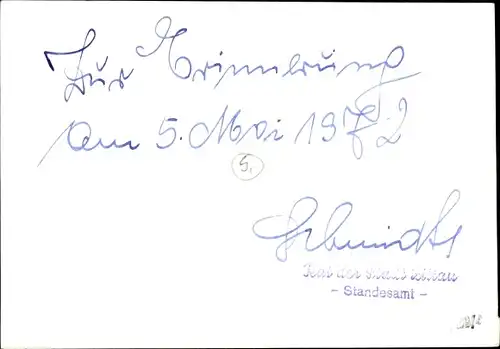 Zur Erinnerung
am 5. Mai 1972
5.
Schmidt
Rat der Stadt
- Standesamt -